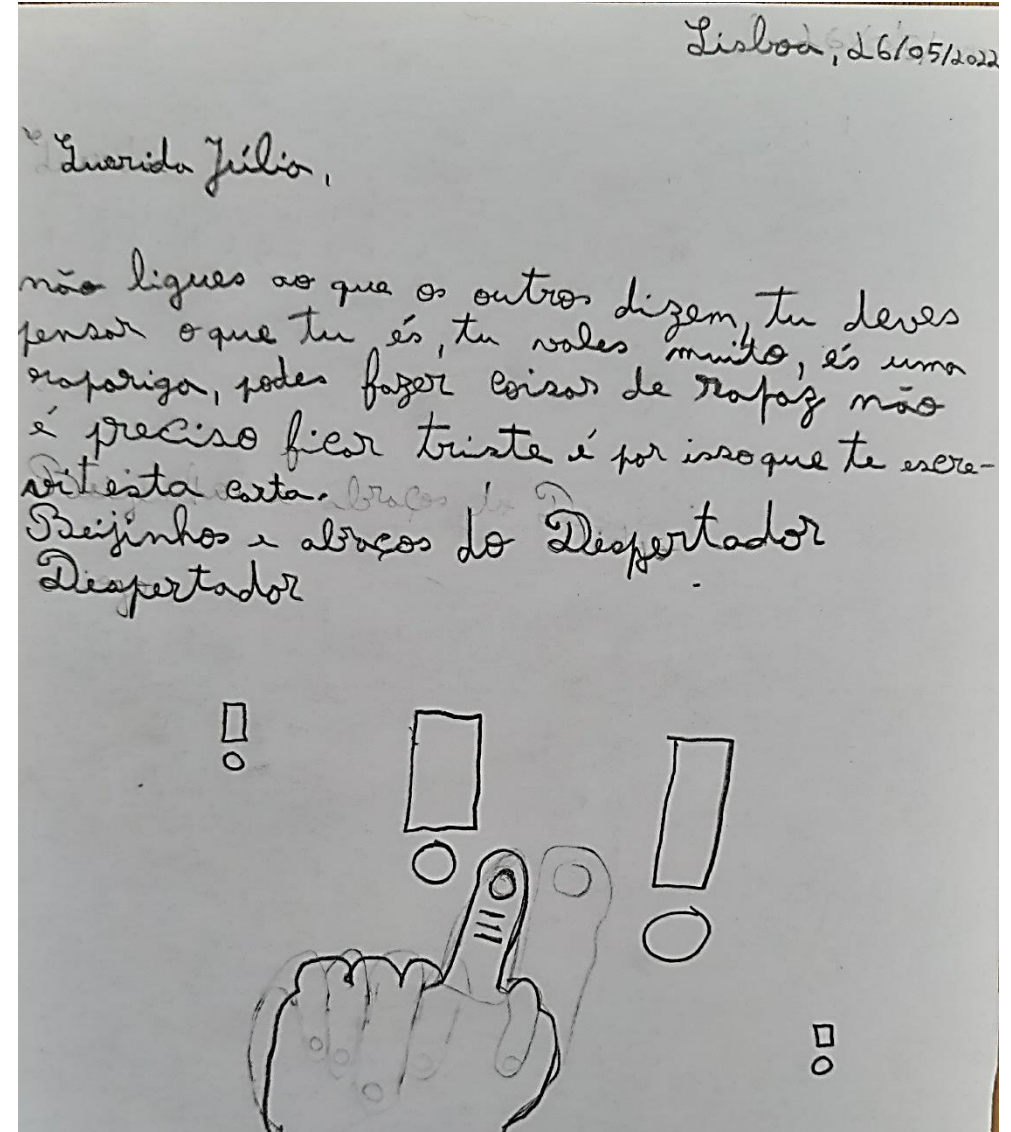 Lisboa, 26/05/2022
Querida Júlia,
não ligues ao que os outros dizem, tu deves
pensar o que tu és, tu vales muito, és uma
rapariga, podes fazer coisas de rapaz não
é preciso ficar triste é por isso que te escre-
vi esta carta.
Beijinhos e abraços do Despertador
Despertador